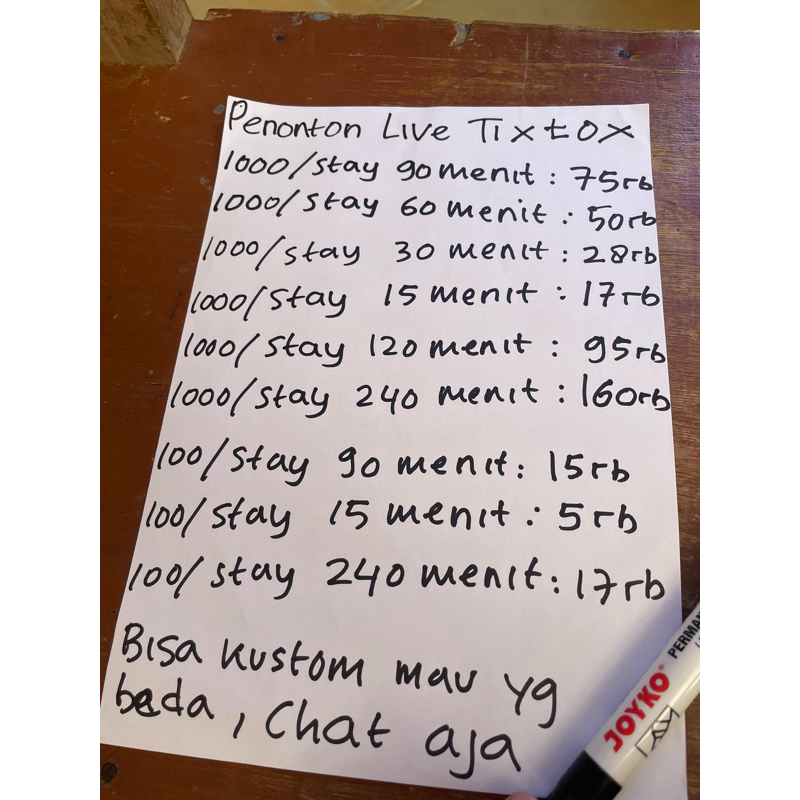 Penonton Live Tixtox
1000/stay 90 menit : 75rb
1000/stay 60 menit : 50rb
1000/stay 30 menit : 28rb
1000/stay 15 menit : 17rb
1000/stay 120 menit : 95rb
1000/stay 240 menit : 160rb
100/stay 90 menit : 15rb
100/stay 15 menit : 5rb
100/stay 240 menit : 17rb
Bisa kustom mau yg
beda, Chat aja
JOYKO